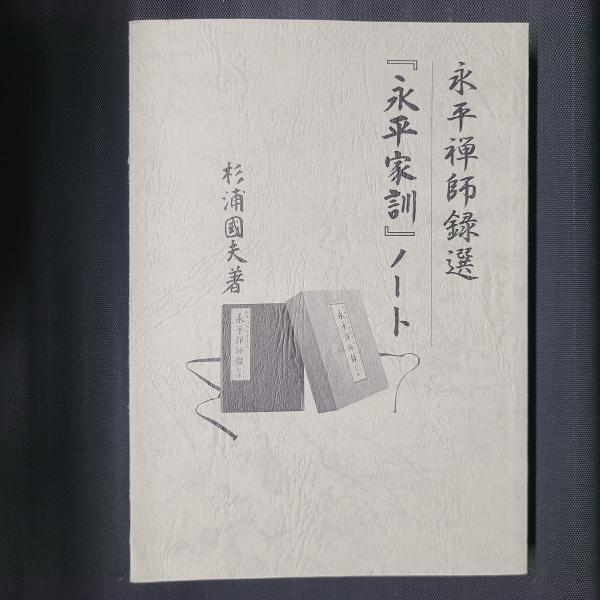 永平禅師録選
『永平家訓』ノート
杉浦國夫著
永平禅師録
永平禅師録